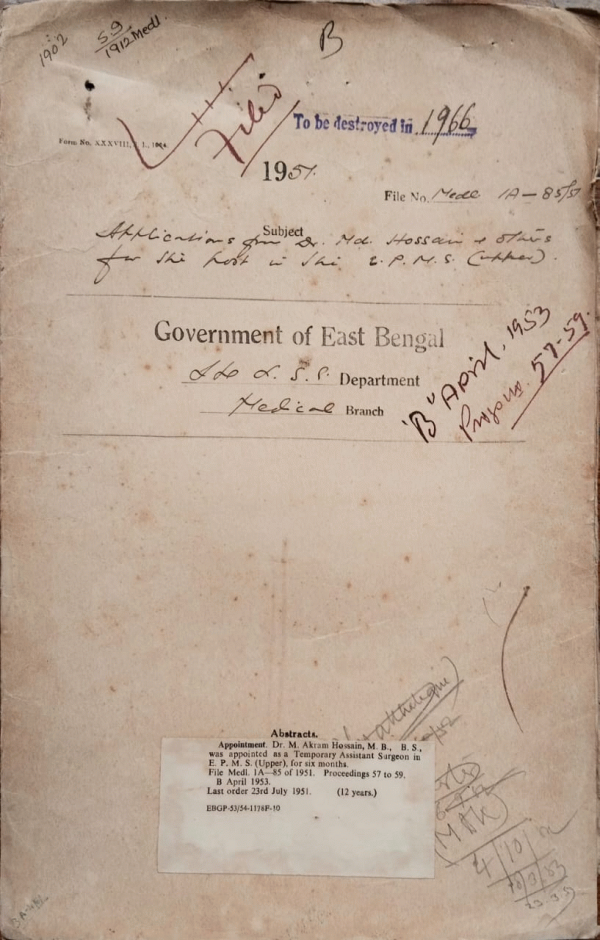 B
59
1902
1912 Medl.
Filed
To be destroyed in 1966
Form No. XXXVIII,
1951.
File No. Medl 1A—85/51
Subject
Applications from Dr. Md. Hossain & others
for the post in the E.P.M.S. (upper).
Government of East Bengal
Department
Medical Branch
"B" April, 1953
57-59.
Abstracts.
Appointment. Dr. M. Akram Hossain, M. B., B. S.,
was appointed as a Temporary Assistant Surgeon in
E. P. M. S. (Upper), for six months.
File Medl. 1A—85 of 1951. Proceedings 57 to 59.
B April 1953.
Last order 23rd July 1951. (12 years.)
EBGP-53/54-1178F-10